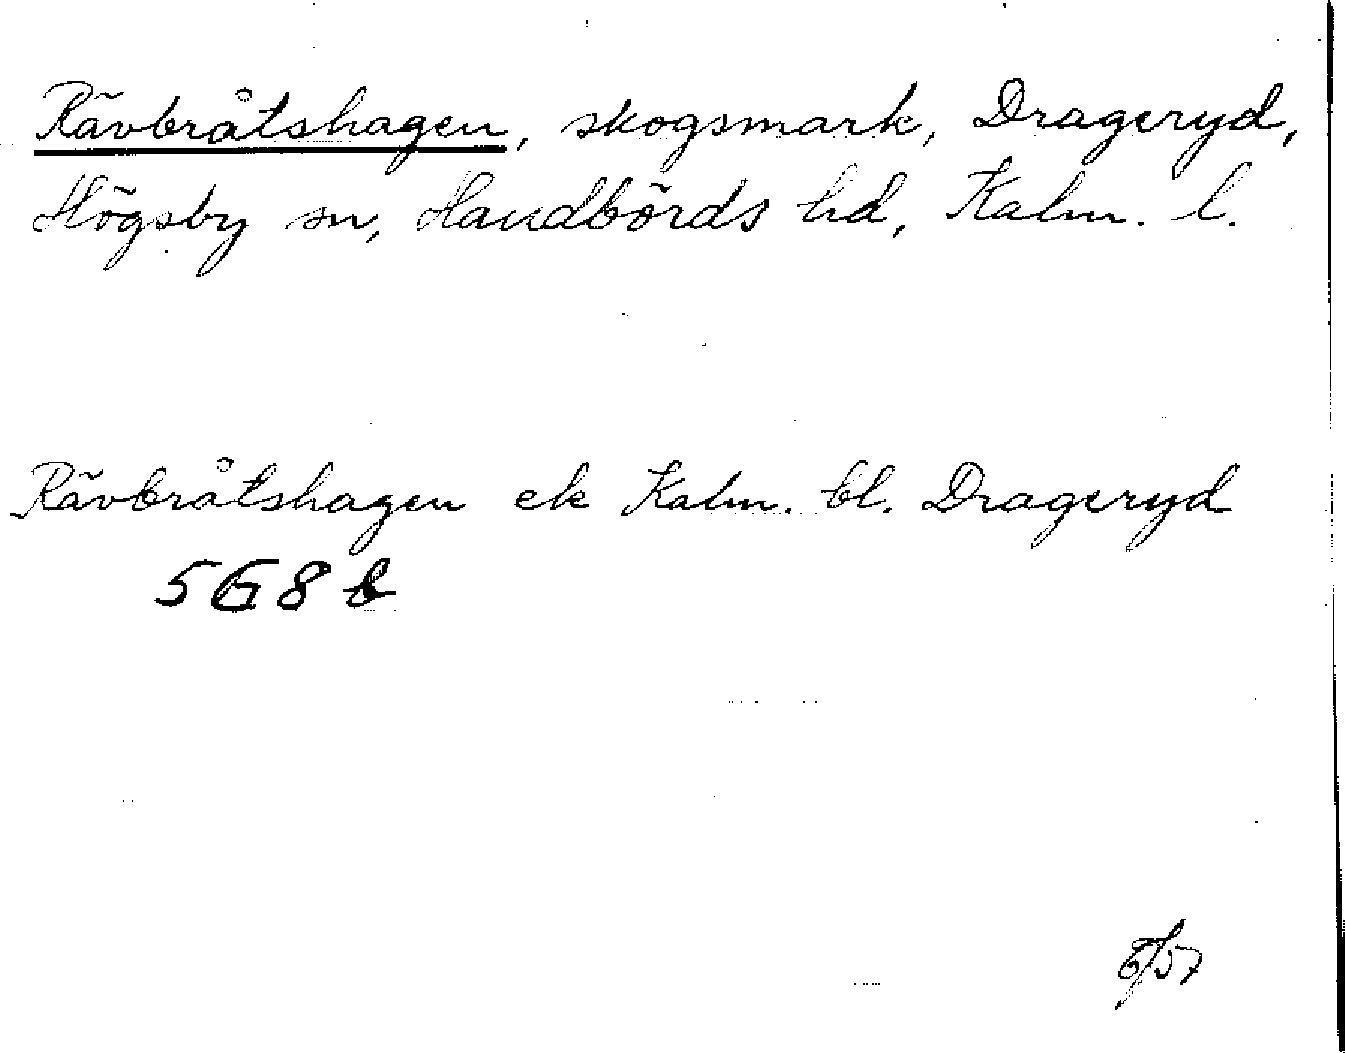 Rävbråtshagen, skogsmark, Drageryd,
Högsby sn, Handbörds hd, Kalm. l.
Rävbråtshagen ek Kalm. bl. Drageryd
5G8b